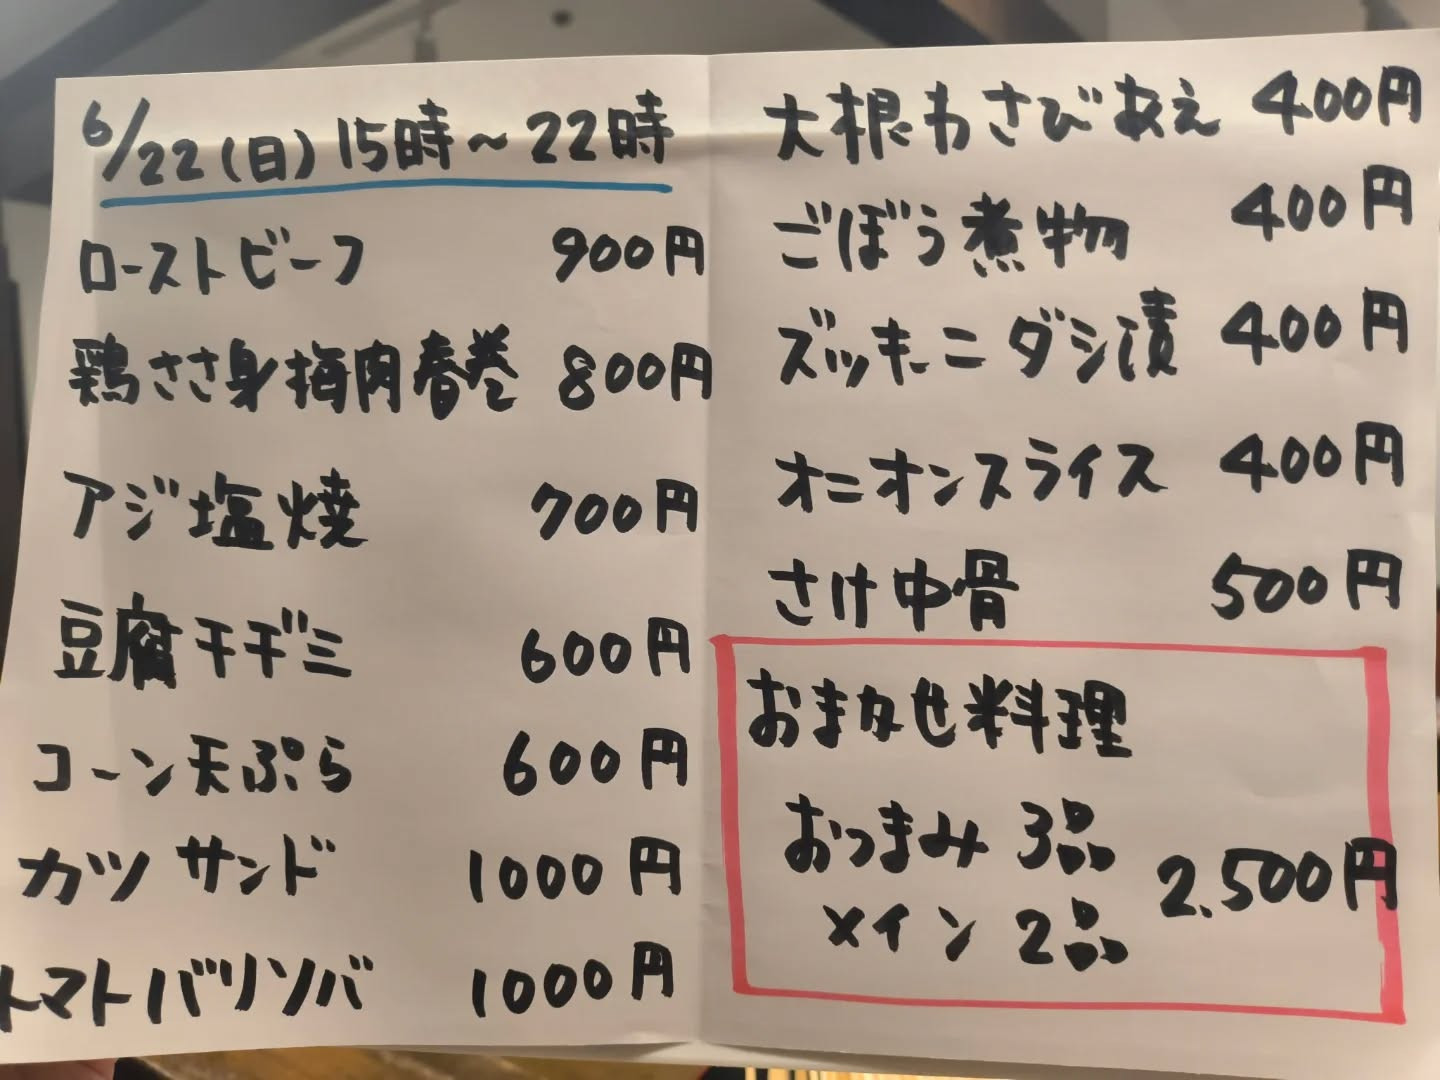 6/22(日)15時～22時
ローストビーフ 900円
鶏ささ身梅肉春巻 800円
アジ塩焼 700円
豆腐チヂミ 600円
コーン天ぷら 600円
カツサンド 1000円
トマトバリソバ 1000円
大根わさびあえ 400円
ごぼう煮物 400円
ズッキーニダシ漬 400円
オニオンスライス 400円
さけ中骨 500円
おまかせ料理
おつまみ 3品
メイン 2品 2.500円